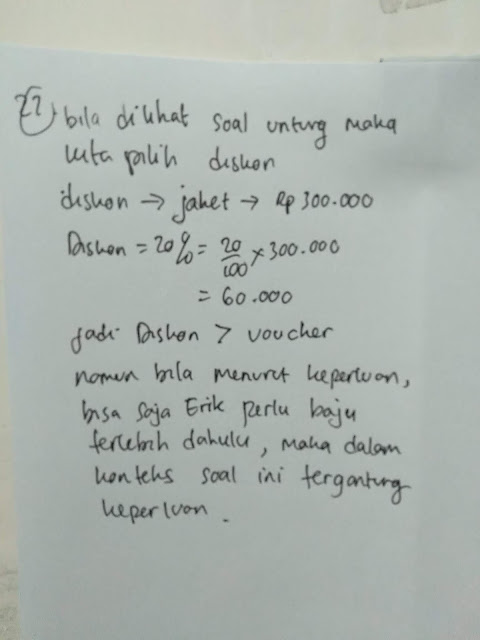 22) bila dilihat soal untung maka
kita pilih diskon
diskon → jaket → Rp 300.000
Diskon = 20% = 20/100 x 300.000
= 60.000
jadi Diskon > voucher
namun bila menurut keperluan,
bisa saja Erik perlu baju
terlebih dahulu, maka dalam
konteks soal ini tergantung
keperluan.